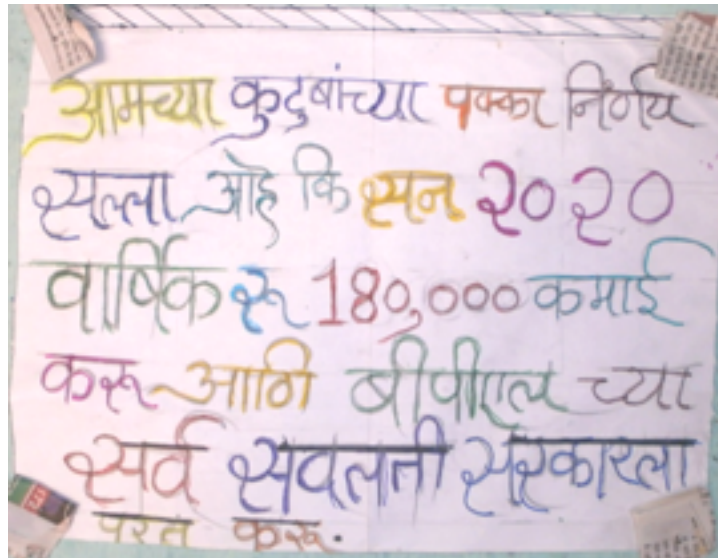 आमच्या कुटुबांच्या पक्का निर्णय
सल्ला आहे कि सन २०२०
वार्षिक रू 180,000 कमाई
करू आणि बीपीएल च्या
सर्व सवलती सरकारला
परत करू.